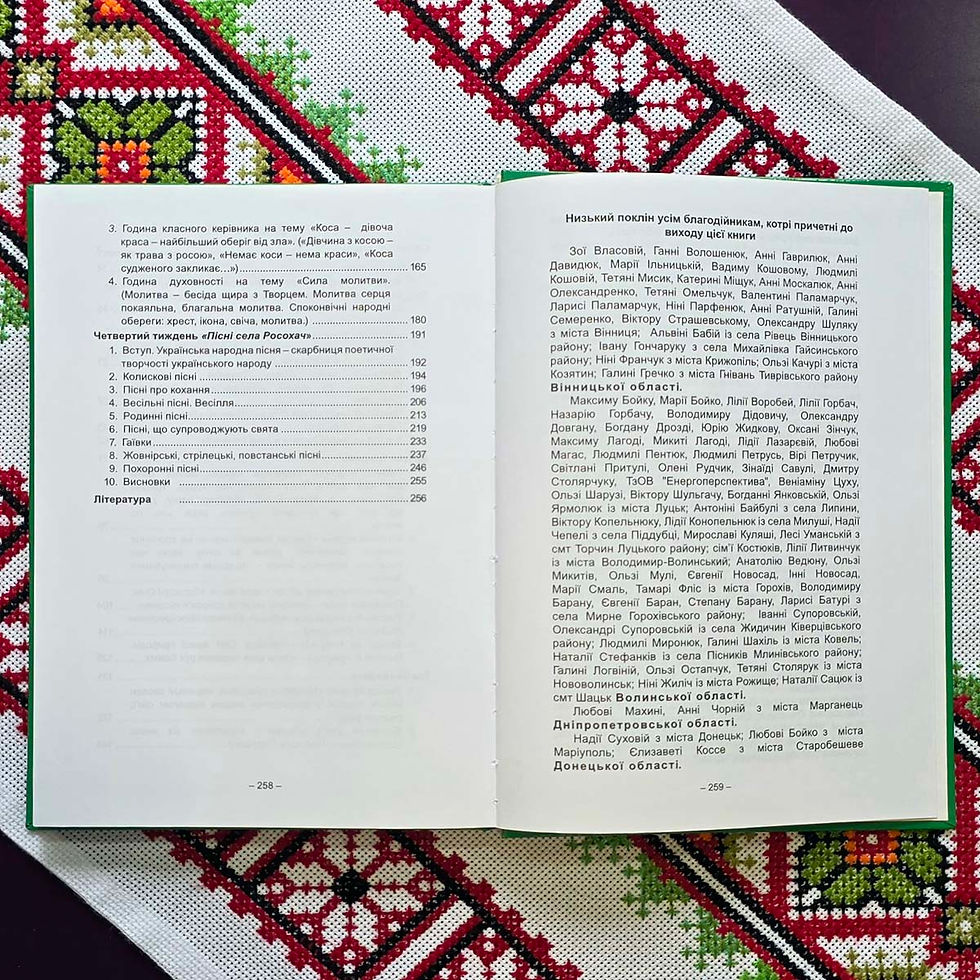 3. Година класного керівника на тему «Коса – дівоча
краса – найбільший оберіг від зла». («Дівчина з косою –
як трава з росою», «Немає коси – нема краси», «Коса
судженого закликає...») 165
4. Година духовності на тему «Сила молитви».
(Молитва – бесіда щира з Творцем. Молитва серця
покаяльна, благальна молитва. Споконвічні народні
обереги: хрест, ікона, свіча, молитва.) 180
Четвертий тиждень «Пісні села Росохач» 191
1. Вступ. Українська народна пісня – скарбниця поетичної
творчості українського народу 192
2. Колискові пісні 194
3. Пісні про кохання 196
4. Весільні пісні. Весілля 206
5. Родинні пісні 213
6. Пісні, що супроводжують свята 219
7. Гаївки 233
8. Жовнірські, стрілецькі, повстанські пісні 237
9. Похоронні пісні 246
10. Висновки 255
Література 256
– 258 –
Низький поклін усім благодійникам, котрі причетні до
виходу цієї книги
Зої Власовій, Ганні Волошенюк, Анні Гаврилюк, Анні
Давидюк, Марії Ільницькій, Вадиму Кошовому, Людмилі
Кошовій, Тетяні Мисик, Катерині Міщук, Анні Москалюк, Анні
Олександренко, Тетяні Омельчук, Валентині Паламарчук,
Ларисі Паламарчук, Ніні Парфенюк, Анні Ратушній, Галині
Семеренко, Віктору Страшевському, Олександру Шуляку
з міста Вінниця; Альвіні Бабій із села Рівець Вінницького
району; Івану Гончаруку з села Михайлівка Гайсинського
району; Ніні Франчук з міста Крижопіль; Ользі Качурі з міста
Козятин; Галині Гречко з міста Гнівань Тиврівського району
Вінницької області.
Максиму Бойку, Марії Бойко, Лілії Воробей, Лілії Горбач,
Назарію Горбачу, Володимиру Дідовичу, Олександру
Довгану, Богдану Дрозді, Юрію Жидкову, Оксані Зінчук,
Максиму Лагоді, Микиті Лагоді, Лідії Лазарєвій, Любові
Магас, Людмилі Пентюк, Людмилі Петрусь, Вірі Петручик,
Світлані Притулі, Олені Рудчик, Зінаїді Савулі, Дмитру
Столярчуку, ТзОВ "Енергоперспектива", Веніаміну Цуху,
Ользі Шарузі, Віктору Шульгачу, Богданні Янковській, Ользі
Ярмолюк із міста Луцьк; Антоніні Байбулі з села Липини,
Віктору Копельнюку, Лідії Конопельнюк із села Милуші, Надії
Чепелі з села Піддубці, Мирославі Куляші, Лесі Уманській з
смт Торчин Луцького району; сім'ї Костюків, Лілії Литвинчук
із міста Володимир-Волинський; Анатолію Ведюну, Ользі
Микитів, Ользі Мулі, Євгенії Новосад, Інні Новосад,
Марії Смаль, Тамарі Фліс із міста Горохів, Володимиру
Барану, Євгенії Баран, Степану Барану, Ларисі Батурі з
села Мирне Горохівського району; Іванні Супоровській,
Олександрі Супоровській із села Жидичин Ківерцівського
району; Людмилі Миронюк, Галині Шахіль із міста Ковель;
Наталії Стефанків із села Пісників Млинівського району;
Галині Логвіній, Ользі Остапчук, Тетяні Столярук із міста
Нововолинськ; Ніні Жиліч із міста Рожище; Наталії Сацюк із
смт Шацьк Волинської області.
Любові Махині, Анні Чорній з міста Марганець
Дніпропетровської області.
Надії Суховій з міста Донецьк; Любові Бойко з міста
Маріуполь; Єлизаветі Коссе з міста Старобешеве
Донецької області.
– 259 –